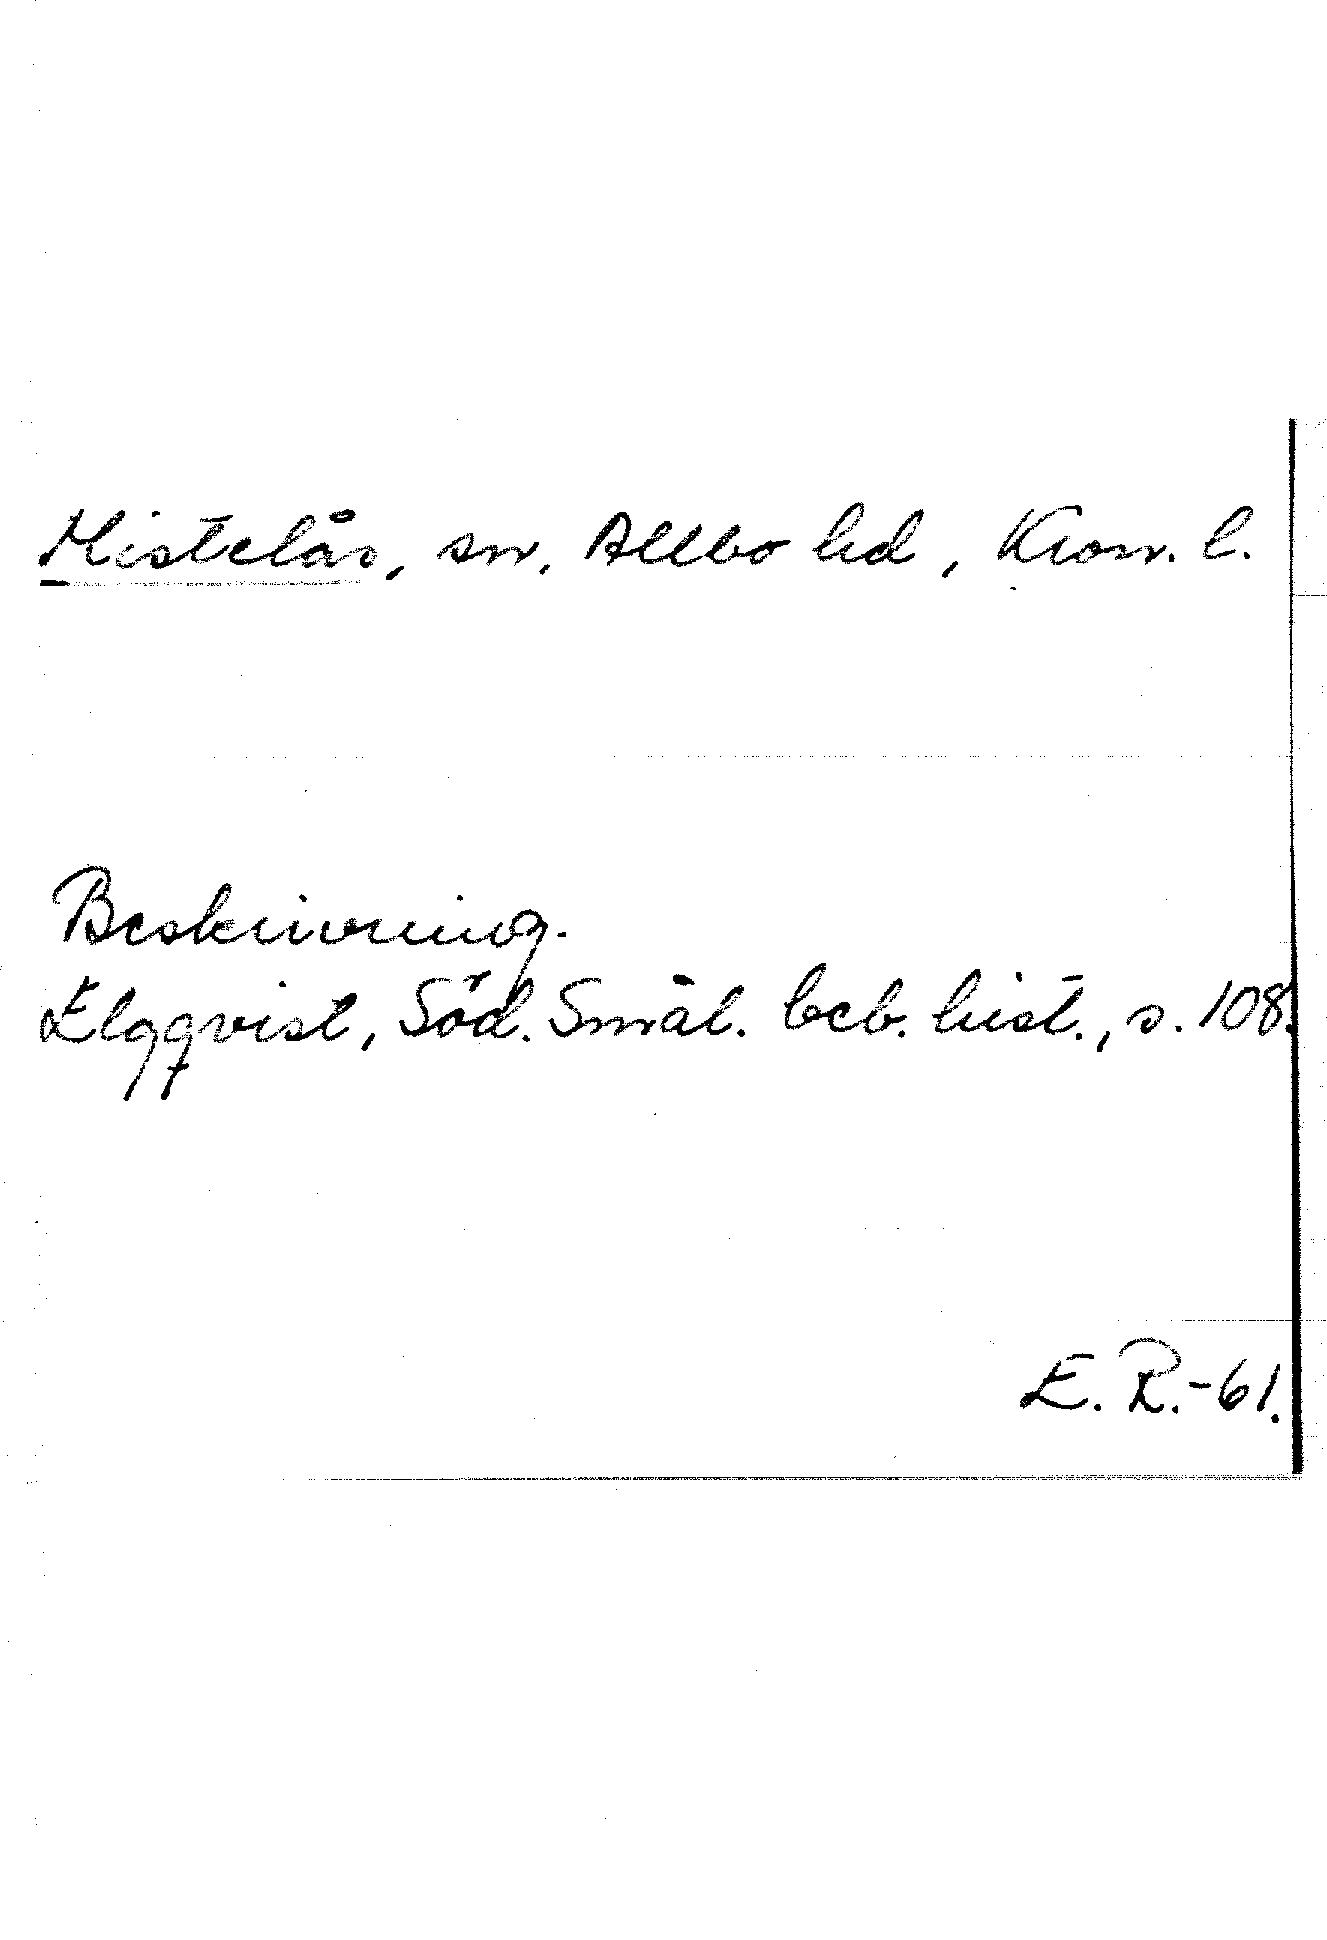 Mistelås, sn, Allbo hd, Kron. l.
Beskrivning.
Elgqvist, Söd. Smål. beb. hist., s. 108.
E. R.-61.